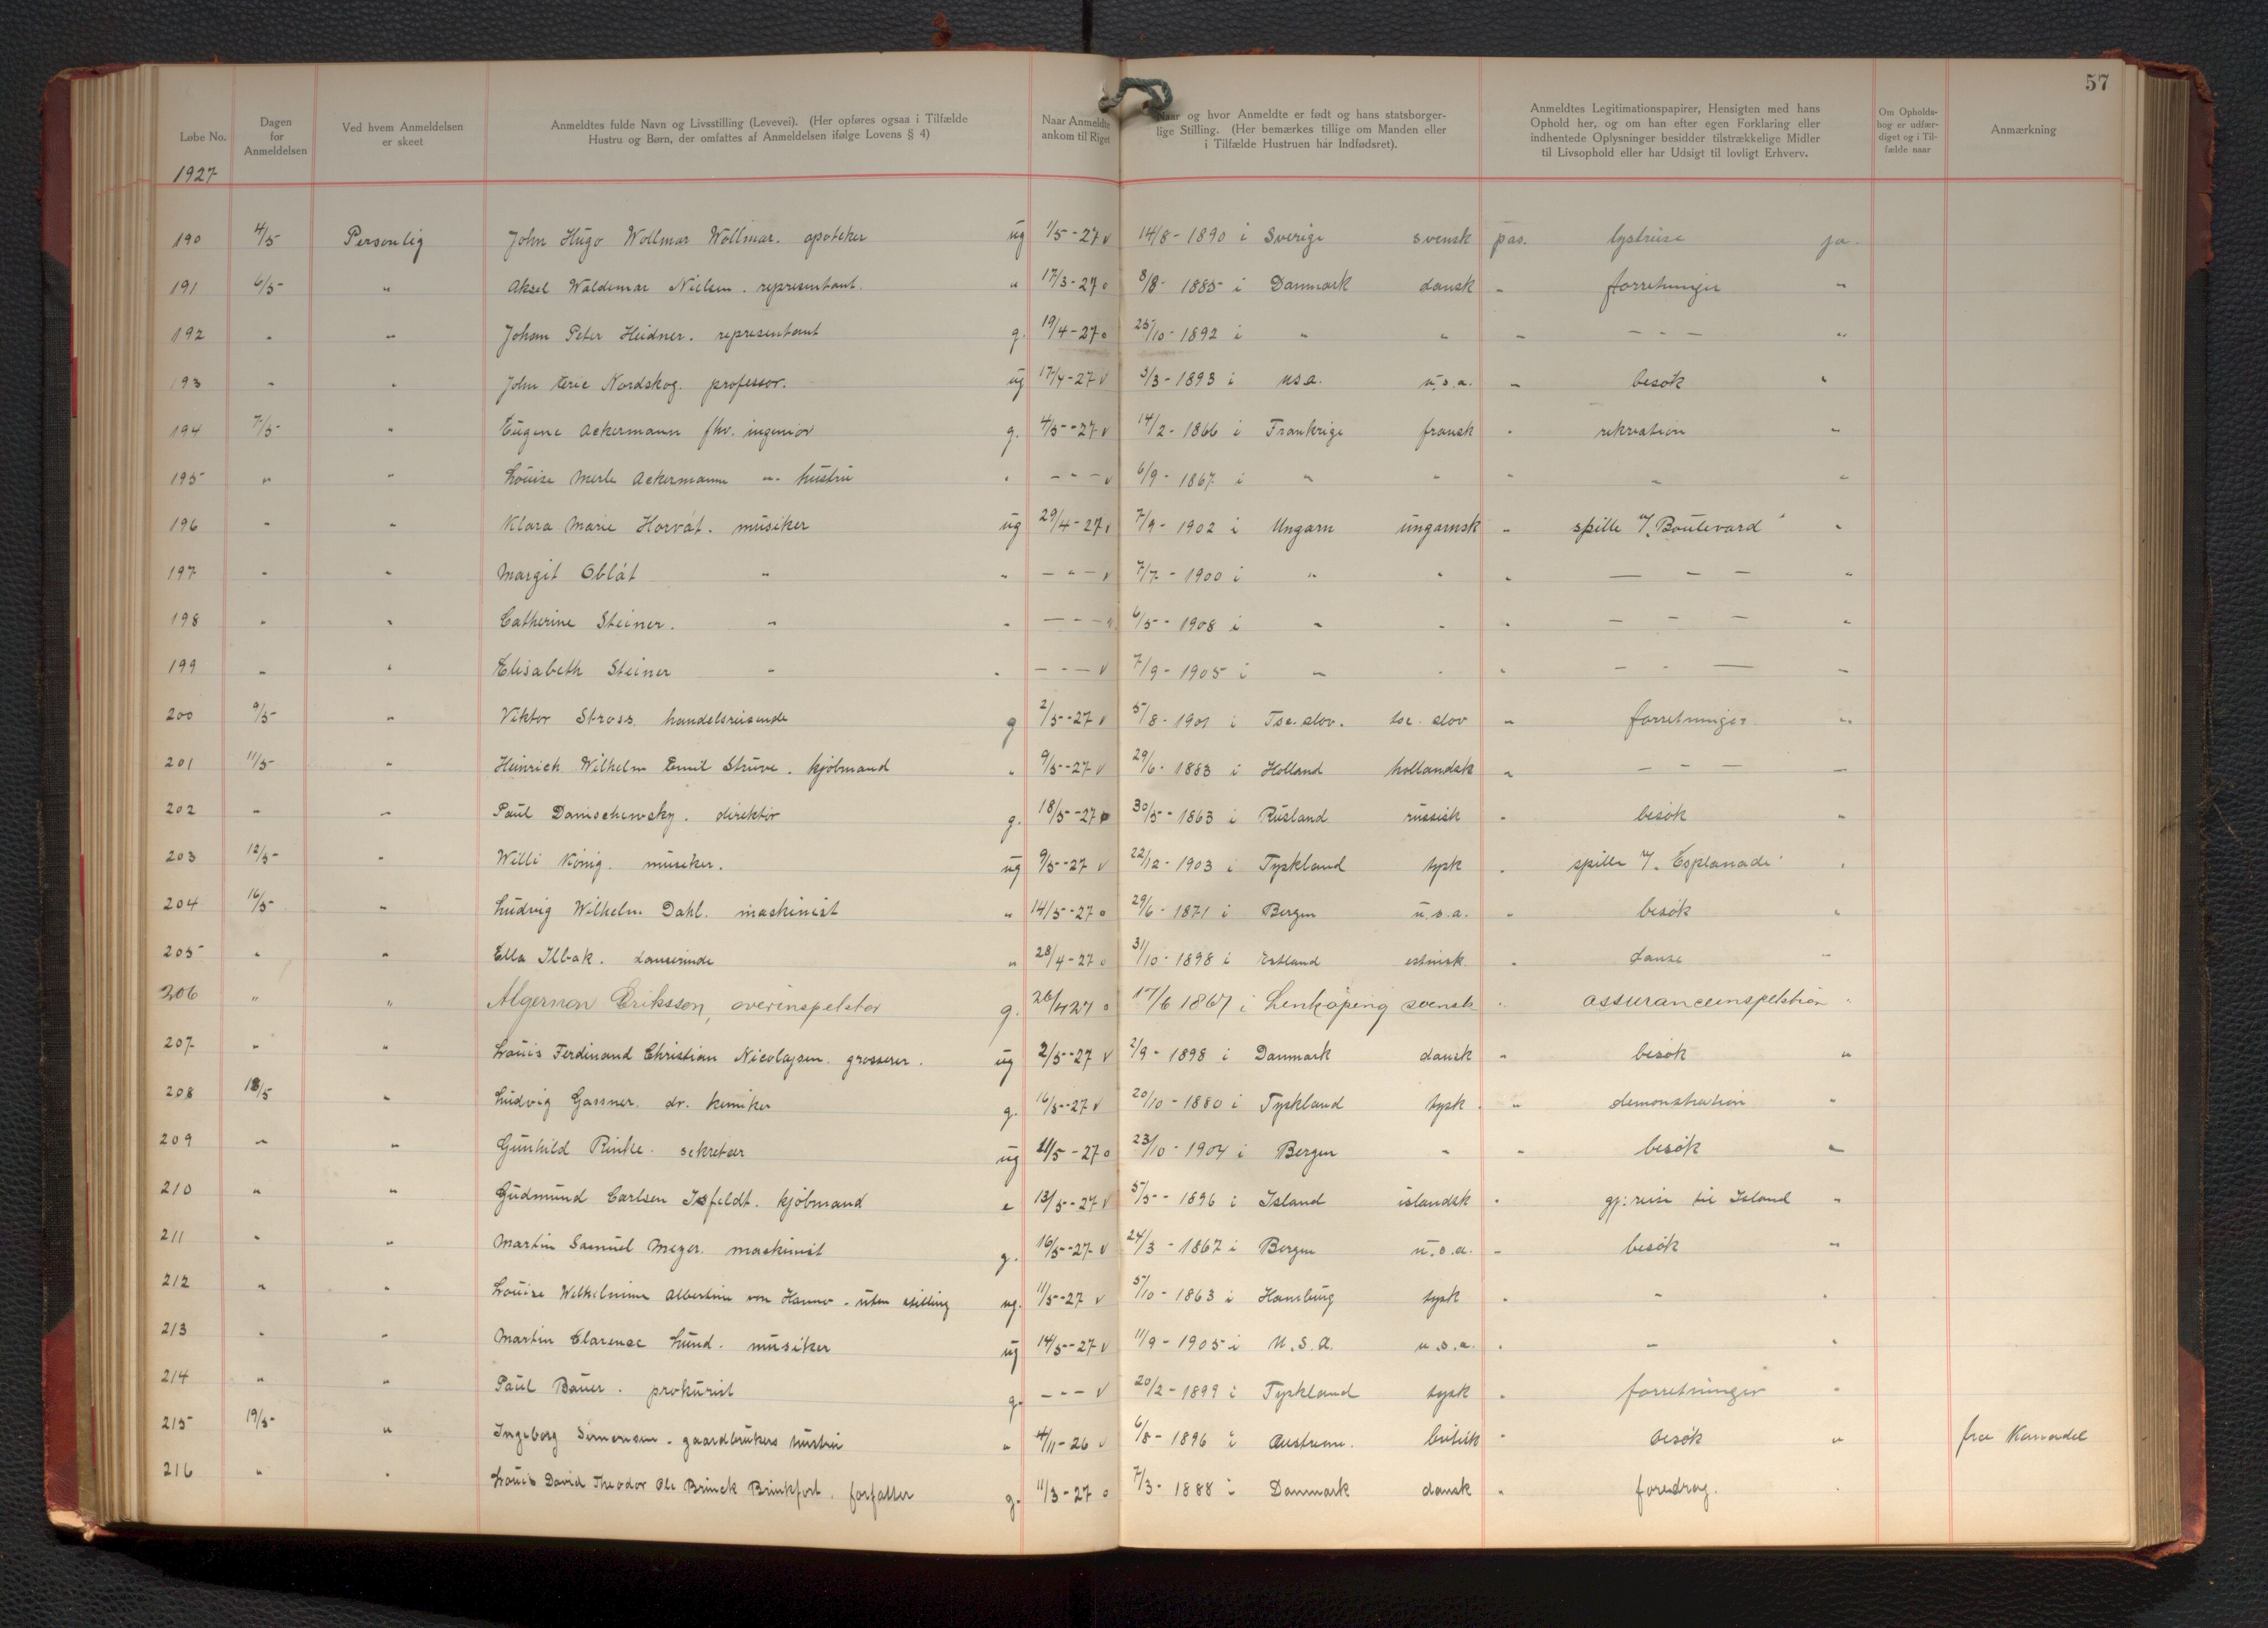 57
Løbe No. Dagen for Anmeldelsen Ved hvem Anmeldelsen er skeet Anmeldtes fulde Navn og Livsstilling (Levevei). (Her opføres ogsaa i Tilfælde Hustru og Børn, der omfattes af Anmeldelsen ifølge Lovens § 4) Naar Anmeldte ankom til Riget Naar og hvor Anmeldte er født og hans statsborgerlige Stilling. (Her bemærkes tillige om Manden eller i Tilfælde Hustruen har Indfødsret). Anmeldtes Legitimationspapirer, Hensigten med hans Ophold her, og om han efter egen Forklaring eller indhentede Oplysninger besidder tilstrækkelige Midler til Livsophold eller har Udsigt til lovligt Erhverv. Om Opholdsbog er udfærdiget og i Tilfælde naar Anmærkning
1927
190 4/5 Personlig John Hugo Wollmar Wollmar. apoteker ug 1/5-27 v 14/8-1890 i Sverige svensk pas. lystreise ja
191 6/5- " Aksel Waldemar Nielsen. representant. " 17/3-27 o 8/8-1885 i Danmark dansk - forretninger "
192 " " Johan Peter Heidner. representant g. 19/4-27 o 25/10-1892 i " " - - - - "
193 " " John Eric Nordskog. professor. ug 17/4-27 v 3/3-1893 i usa. u.s.a. - besøk "
194 7/5- " Eugene Ackermann fhv. ingeniør g. 4/5-27 v 14/2-1866 i Frankrige fransk " rekreation "
195 " " Louise Merle Ackermann - hustru " - - - v 6/9-1867 i " " " " "
196 " " Klara Marie Horvát. musiker ug 29/4-27 v 7/9-1902 i Ungarn ungarnsk - spille i "Boulevard" "
197 " " Margit Oblát " " - - - v 7/7-1900 i " " " - - - "
198 " " Catherine Steiner. " " - - - v 6/5-1908 i " " " - - - "
199 " " Elisabeth Steiner " " - - - v 7/9-1905 i " " " - - - "
200 9/5- " Viktor Stross handelsreisende g 2/5-27 v 5/8-1901 i Tsc.slov. tsc. slov " forretninger "
201 11/5- " Heinrich Wilhelm Emil Struve. kjøbmand " 9/5-27 v 29/6-1883 i Holland hollandsk " - - - "
202 " " Paul Danischewsky. direktør g. 18/5-27 30/5-1863 i Rusland russisk " besøk "
203 12/5- " Willi König. musiker. ug 9/5-27 v 22/12-1903 i Tyskland tysk " spille i "Esplanade" "
204 16/5- " Ludvig Wilhelm Dahl. maskinist " 14/5-27 o 29/6-1871 i Bergen u.s.a. " besøk "
205 " " Ella Ilbak. danserinde " 28/4-27 o 31/10-1898 i Estland estnisk " danse "
206 " " Algernon Eriksson, overinspektør g. 26/4 27 o 17/6 1867 i Lenköping svensk " assuranceinspektion "
207 " " Louis Ferdinand Christian Nicolajsen. grosserer. ug 2/5-27 v 2/9-1898 i Danmark dansk " besøk "
208 18/5 " Ludvig Gassner. dr. kemiker g. 16/5-27 v 20/10-1880 i Tyskland tysk " demonstration "
209 " " Gunhild Rinke. sekretær ug 11/5-27 o 23/10-1904 i Bergen " " besøk "
210 " " Gudmund Carlsen Isfeldt. kjøbmand " 13/5-27 v 5/5-1896 i Island islandsk " gj:reise til Island "
211 " " Martin Samuel Meyer. maskinist g. 16/5-27 v 24/3-1867 i Bergen u.s.a. - besøk "
212 " " Louise Wilhelmine Albertine von Hanno. uten stilling ug. 11/5-27 v 5/10-1863 i Hamburg tysk " " "
213 " " Martin Clarence Lund. musiker ug 14/5-27 v 11/9-1905 i U.S.A. u.s.a. " " "
214 " " Paul Bauer. prokurist g. - - - v 20/2-1899 i Tyskland tysk " forretninger "
215 19/5- " Ingeborg Simonsen. gaardbrukers hustru " 4/11-26 v 6/8-1896 i britisk " besøk " fra
216 " " Louis David Theodor Ole Brinck Brinkfort. forfatter g. 11/3-27 o 7/3-1888 i Danmark dansk " foredrag. "